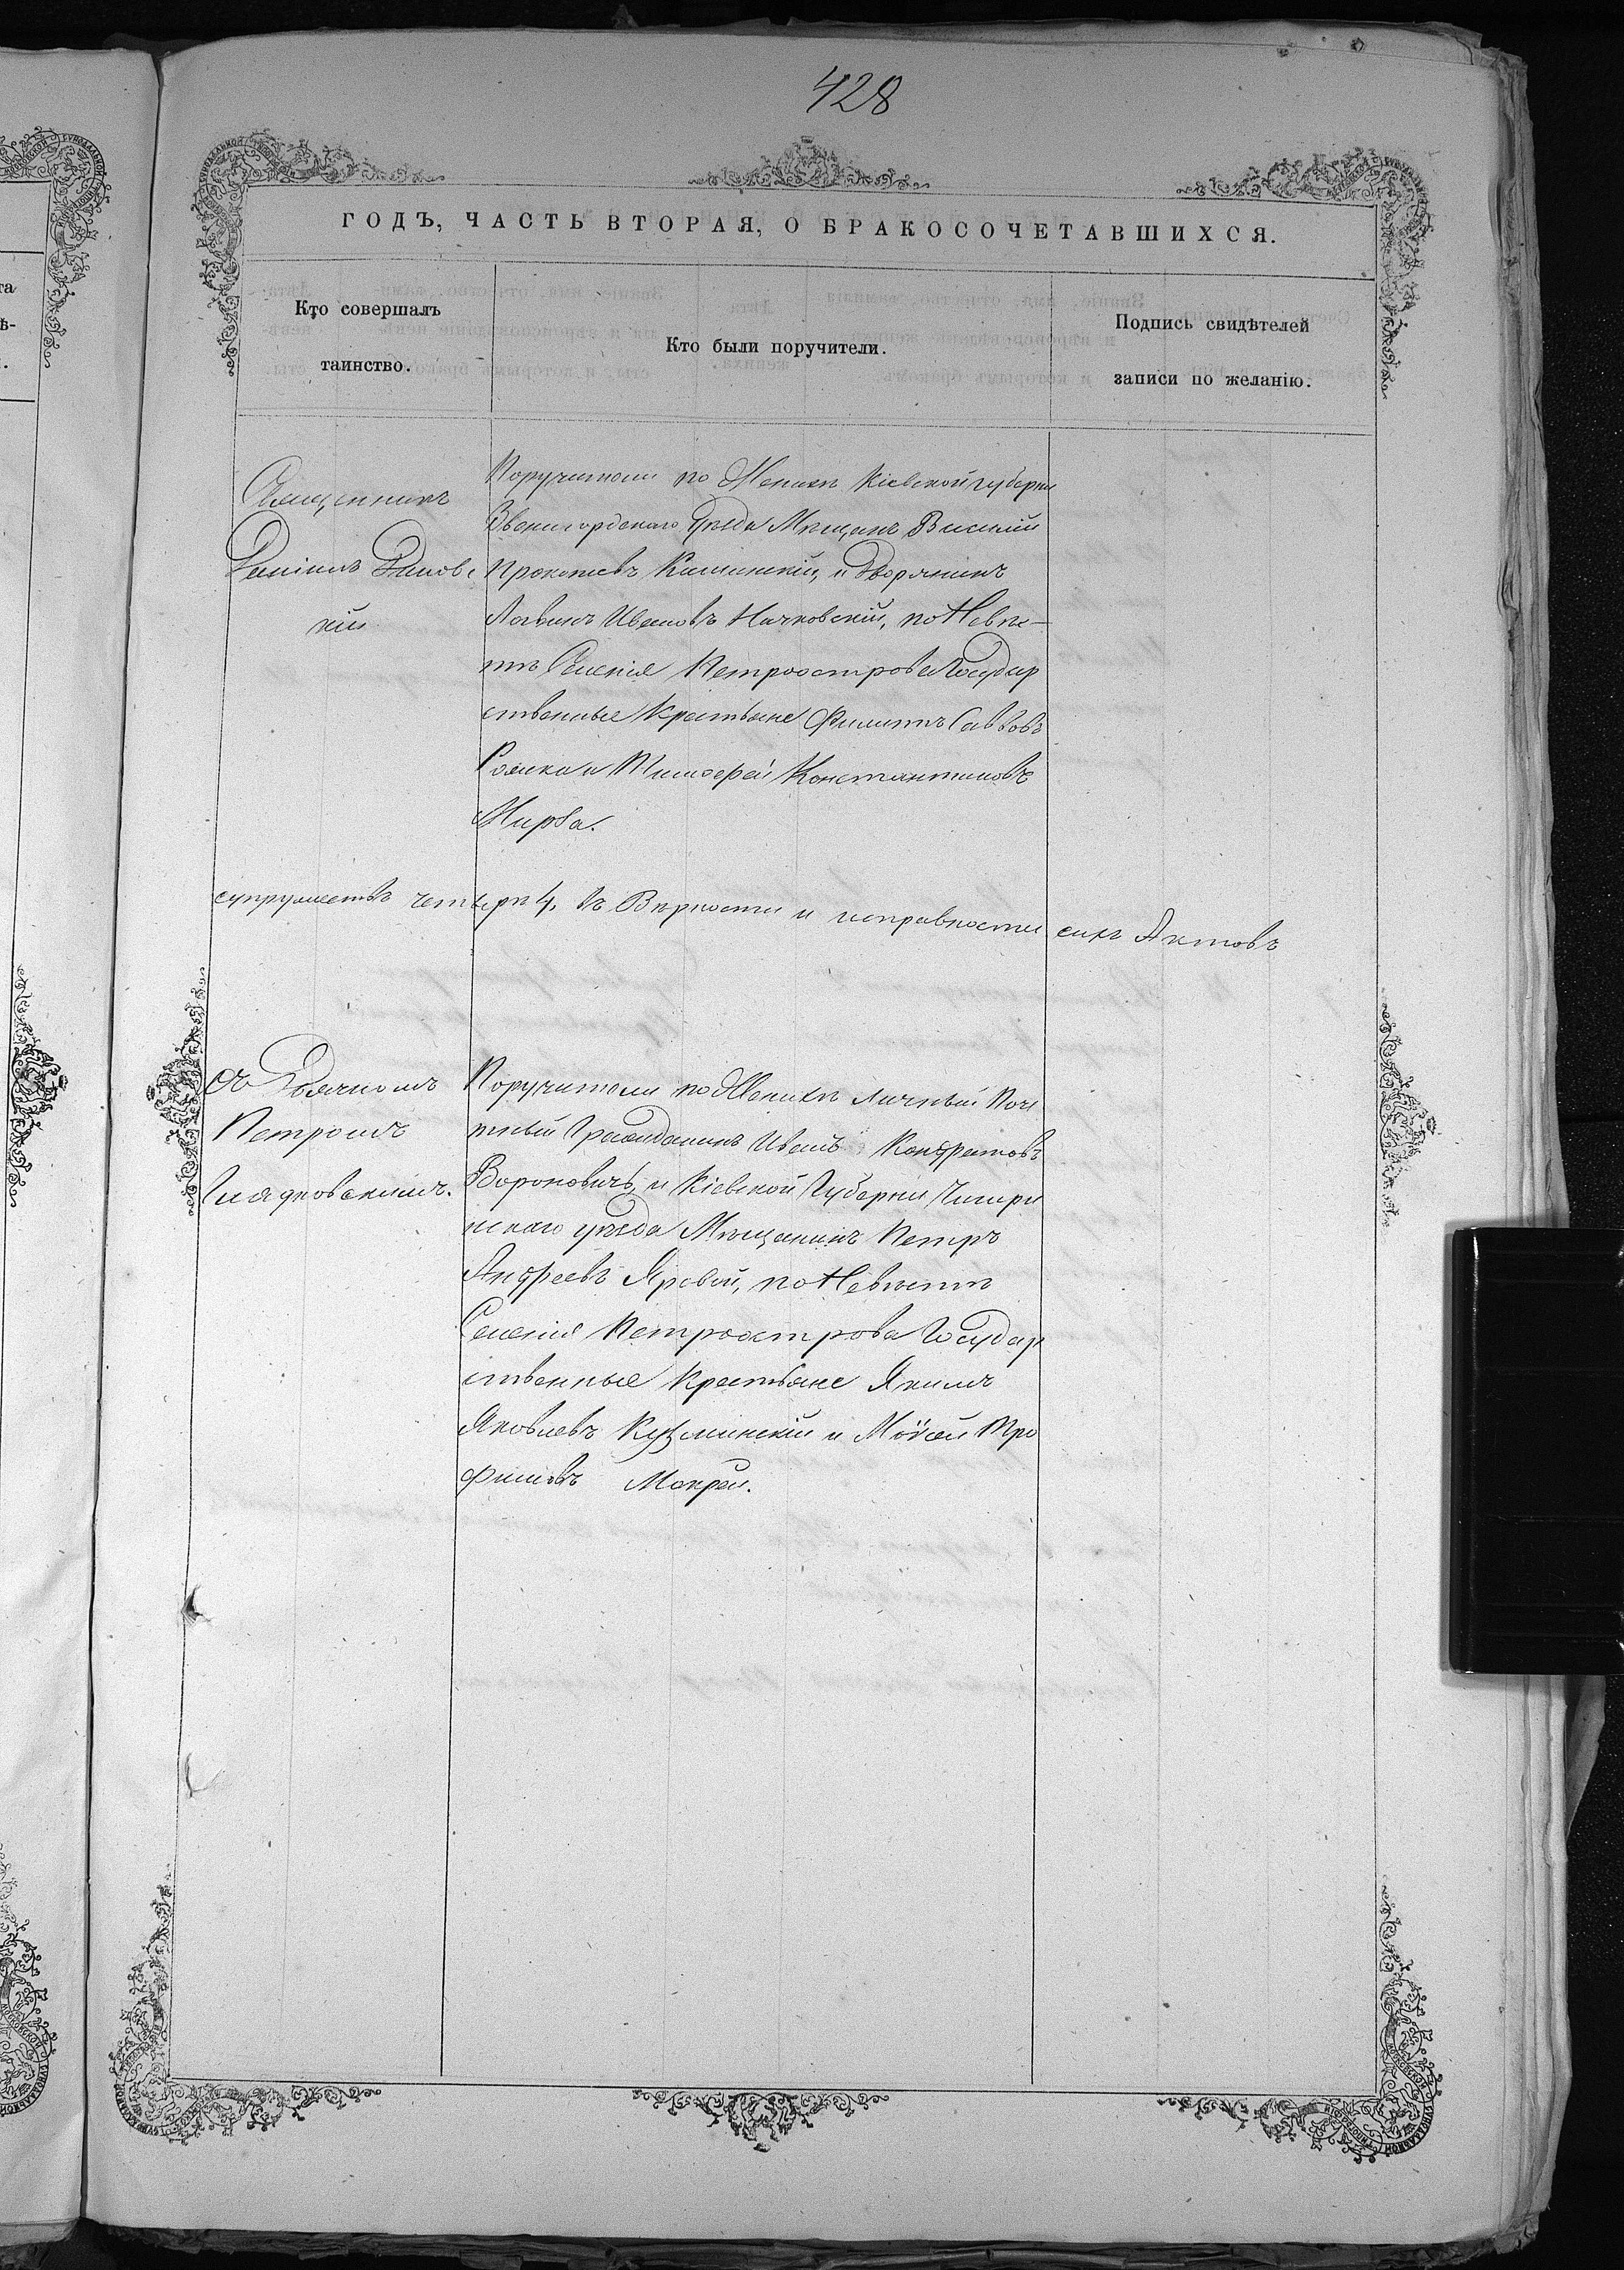 428
ГОДЪ, ЧАСТЬ ВТОРАЯ, О БРАКОСОЧЕТАВШИХСЯ.
Кто совершалъ
таинство.
Кто были поручители.
Подпись свидѣтелей
записи по желанію.
Священникъ
кій
Поручители по Женихѣ Кіевской губерни
Звенигородскаго уѣзда Мѣщане
и Дворянинъ
Ивановъ по Невѣс-
тѣ Селенія Петроострова Государ
ственные Крестьяне Филиппъ Саввовъ
и Тимофей Константиновъ
супружествъ четыре 4. Въ Вѣрности и исправности сихъ Актовъ
съ Дьячкомъ
Петромъ
Гладковскимъ.
Поручители по Женихѣ личный Поч
тный Гражданинъ Иванъ Кондратовъ
Вороновичъ, и Кіевской Губерни Чигири
нскаго уѣзда Мѣщанинъ Петръ
Андреевъ Яровой, по Невѣстѣ
Селенія Петроострова Государ
ственные Крестьяне Якимъ
Яковлевъ Кузминскій и Моѵсей Тро
фимовъ Мокрей.